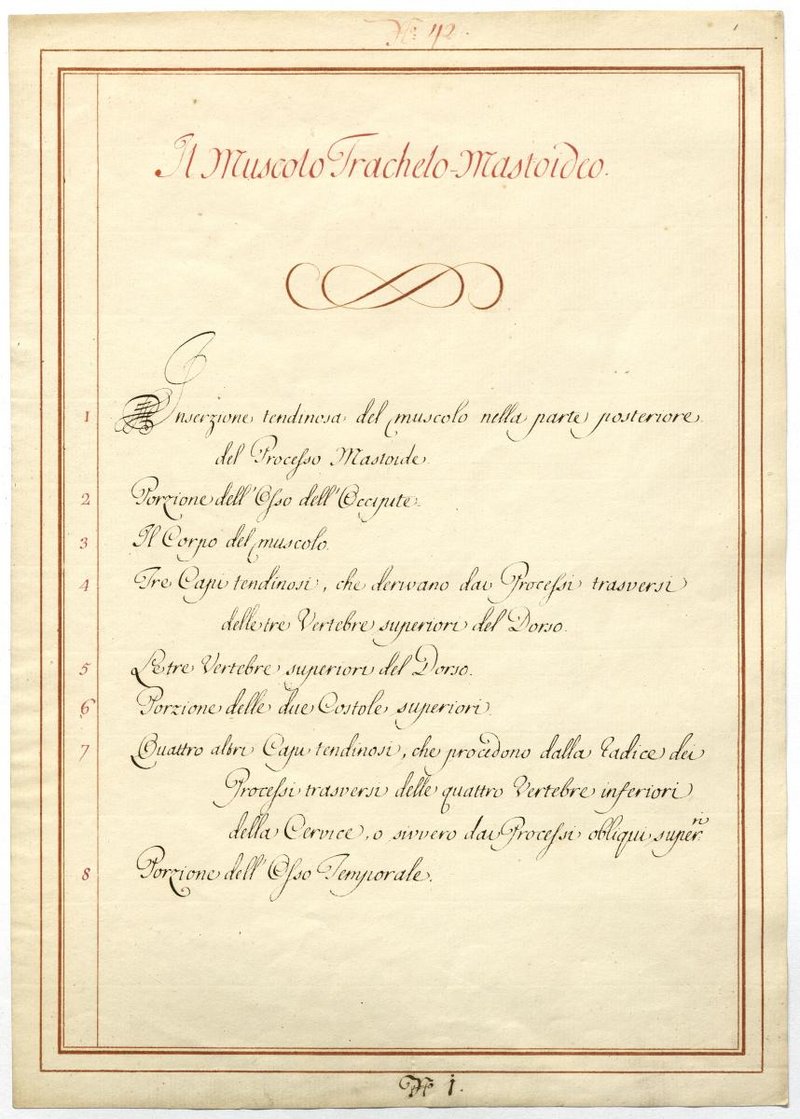 N.º 42.
Il Muscolo Trachelo-Mastoideo.
1 Inserzione tendinosa del muscolo nella parte posteriore
del Processo Mastoide.
2 Porzione dell'Osso dell'Occipite.
3 Il Corpo del muscolo.
4 Tre Capi tendinosi, che derivano dai Processi trasversi
delle tre Vertebre superiori del Dorso.
5 Le tre Vertebre superiori del Dorso.
6 Porzione delle due Costole superiori.
7 Quattro altri Capi tendinosi, che procedono dalla radice dei
Processi trasversi delle quattro Vertebre inferiori
della Cervice, o sivvero dai Processi obliqui super.ri
8 Porzione dell'Osso Temporale.
N.º 1.